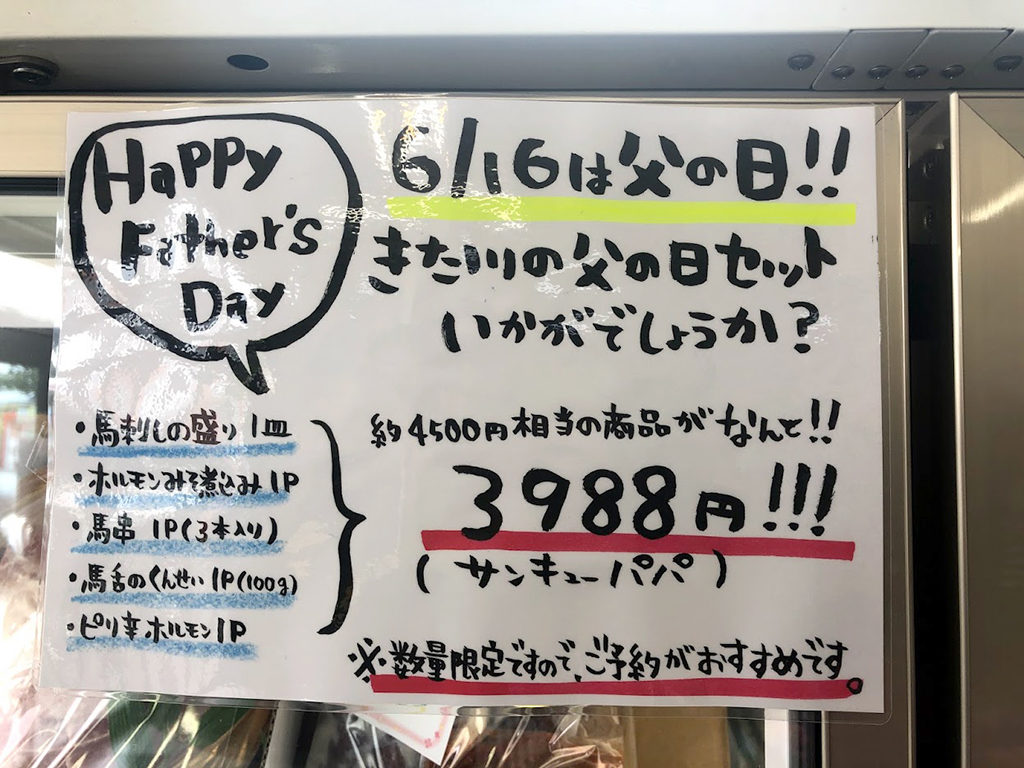 Happy
Father's
Day
6/16は父の日!!
きたハリの父の日セット
いかがでしょうか?
・馬刺しの盛り1皿
・ホルモンみそ煮込み1P
・馬串 1P(3本入り)
・馬舌のくんせい1P(100g)
・ピリ辛ホルモン1P
約4500円相当の商品がなんと!!
3988円!!!
(サンキューパパ)
※数量限定ですので、ご予約がおすすめです。